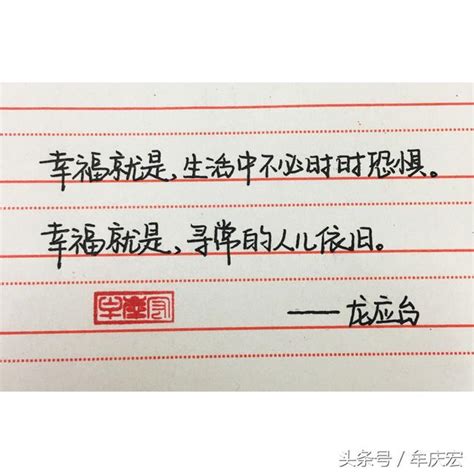 幸福就是,生活中不必时时恐惧。
幸福就是,寻常的人儿依旧。
——龙应台
头条号／牟庆宏